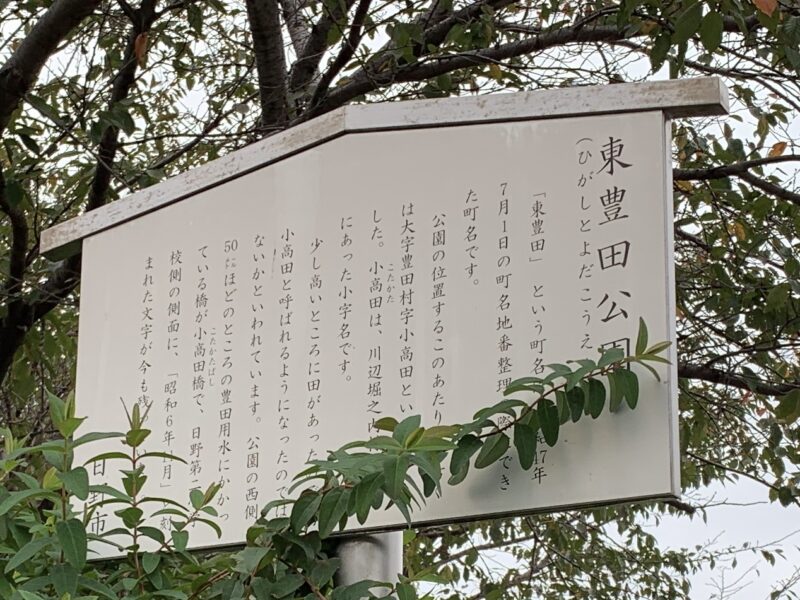 東豊田公園
(ひがしとよだこうえ
「東豊田」という町名 17年
7月1日の町名地番整理 際 でき
た町名です。
公園の位置するこのあたり
は大字豊田村字小高田とい
こたかた
した。小高田は、川辺堀之内
にあった小字名です。
少し高いところに田があった
小高田と呼ばれるようになったので は
ないかといわれています。公園の西側
50ほどのところの豊田用水にかかっ
こたかたばし
ている橋が小高田橋で、日野第
校側の側面に、「昭和6年 月」 刻
まれた文字が今も残
日野市